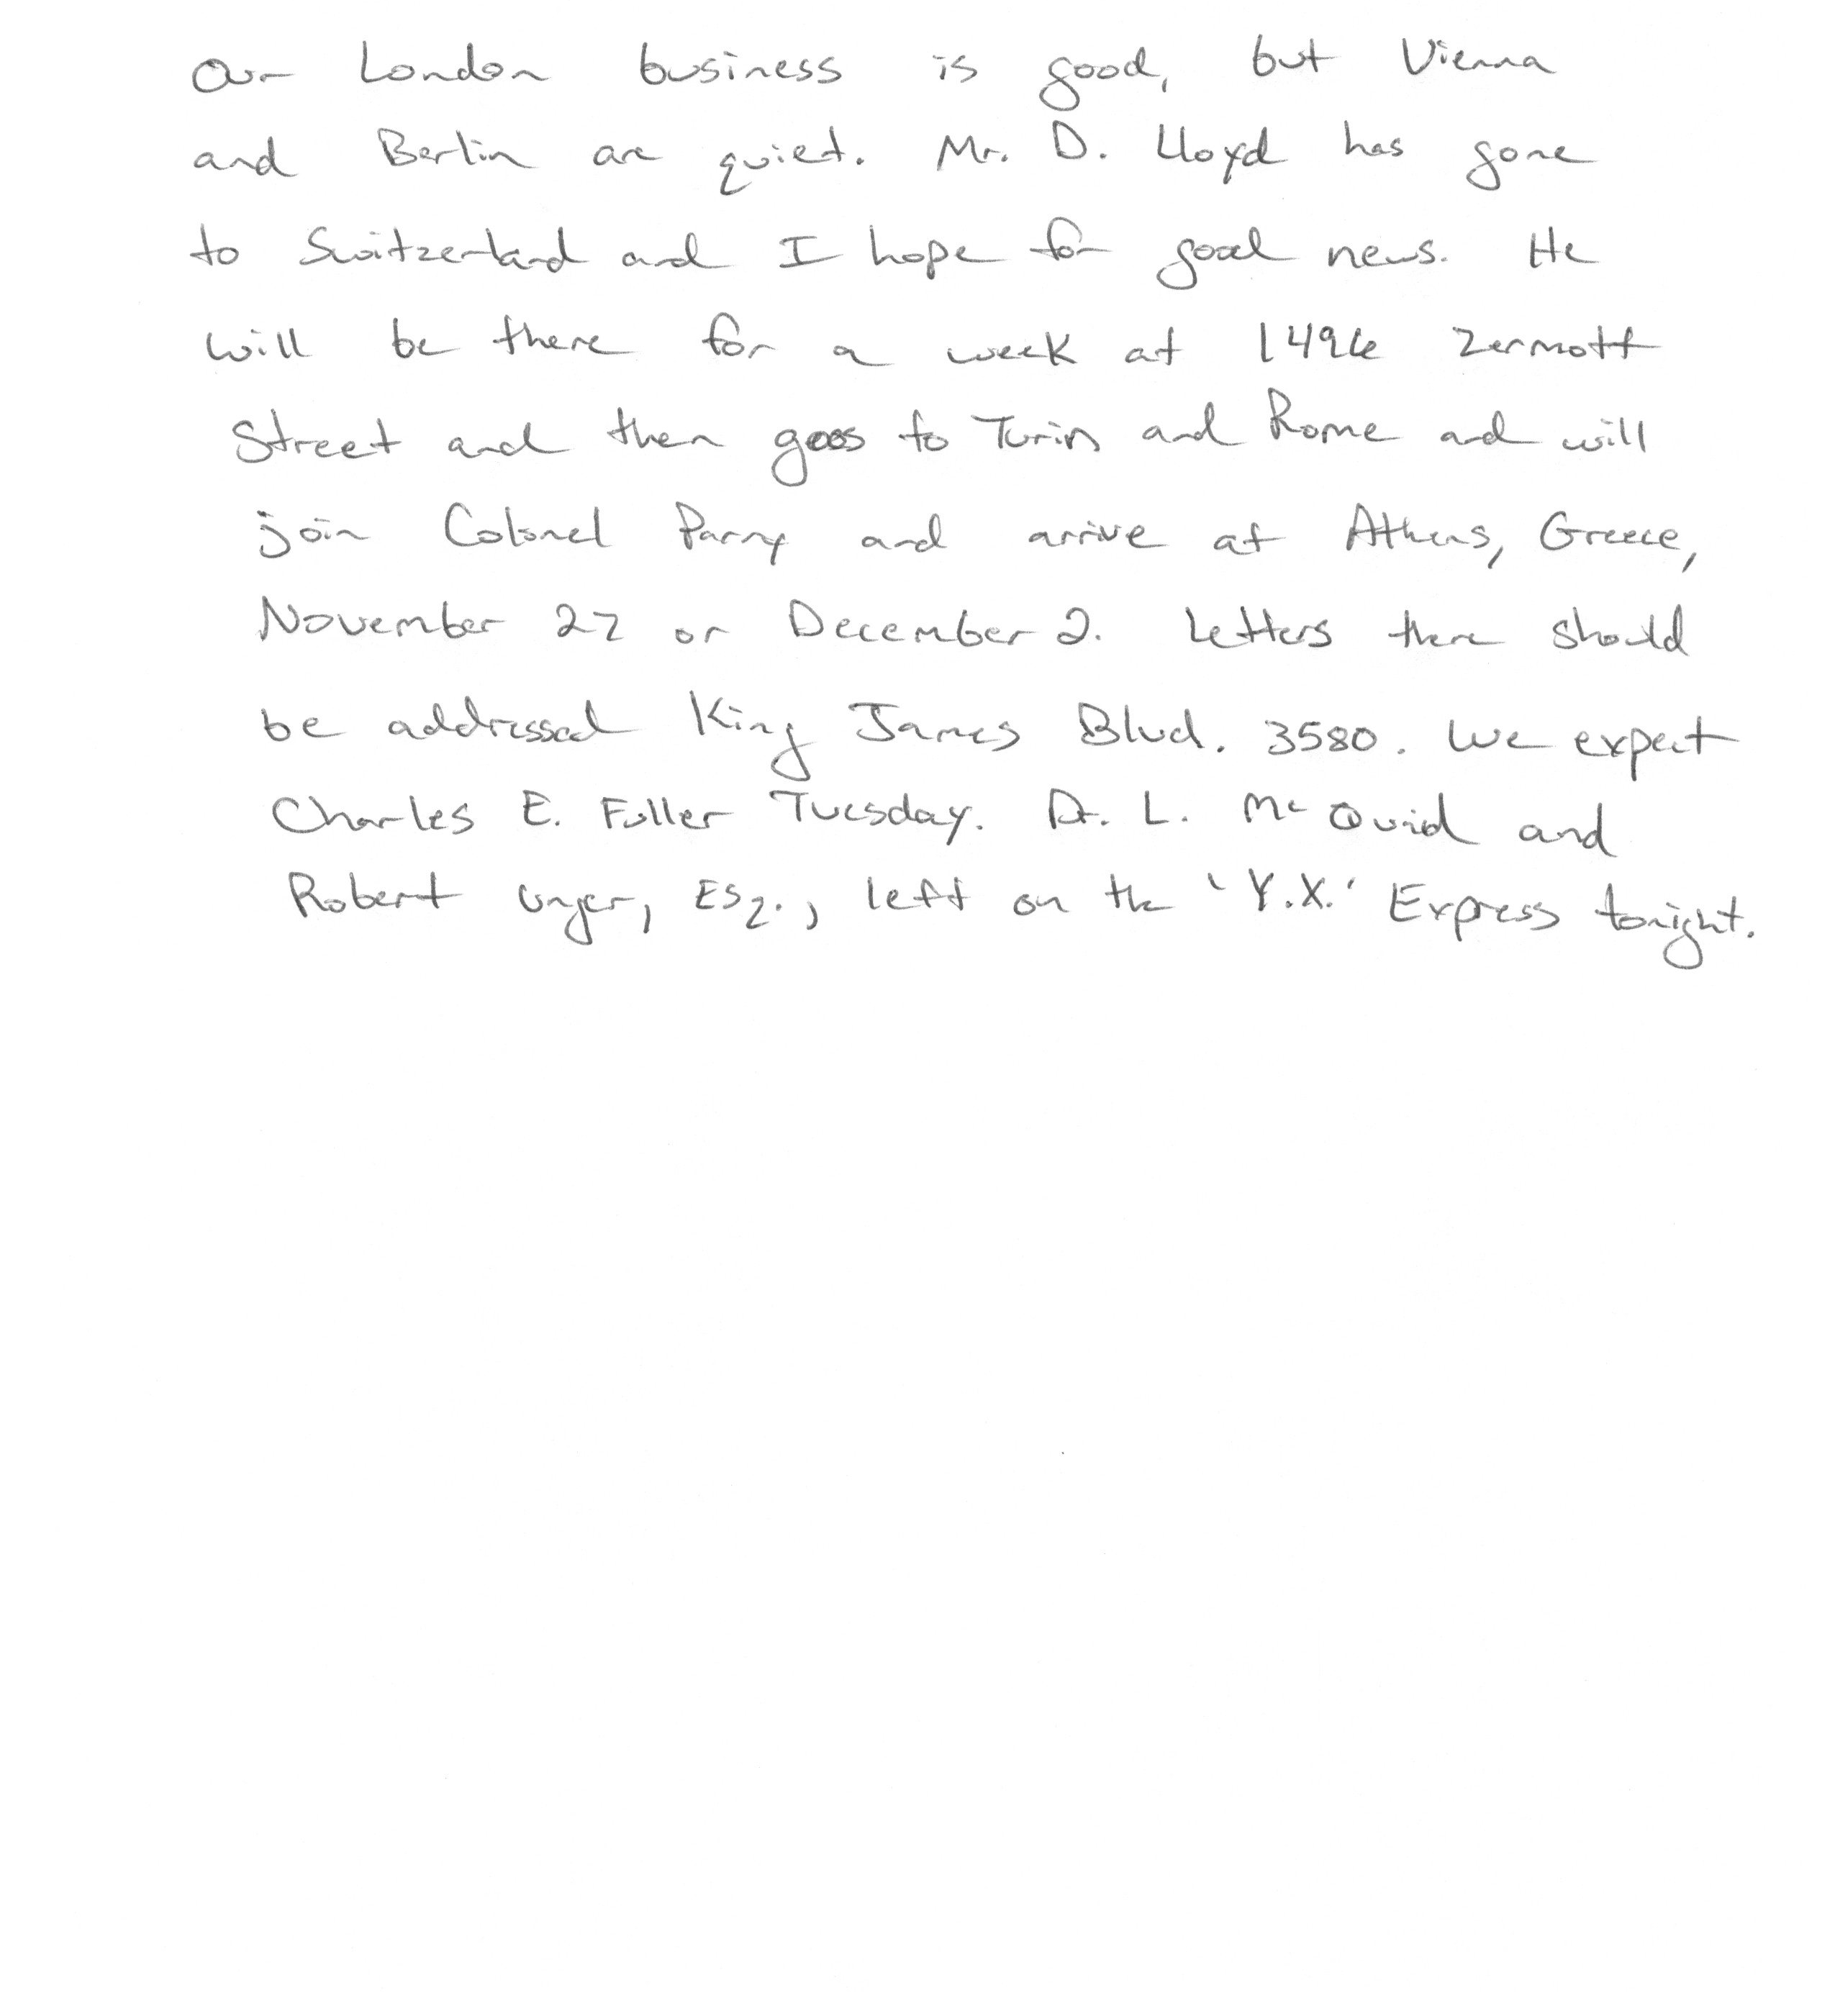 Our London business is good, but Vienna
and Berlin are quiet. Mr. D. Lloyd has gone
to Switzerland and I hope for good news. He
will be there for a week at 1496 Zermott
Street and then goes to Turin and Rome and will
join Colonel Parry and arrive at Athens, Greece,
November 27 or December 2. Letters there should
be addressed King James Blvd. 3580. We expect
Charles E. Fuller Tuesday. Dr. L. McQuaid and
Robert Unger, Esq., left on the 'Y.X.' Express tonight.